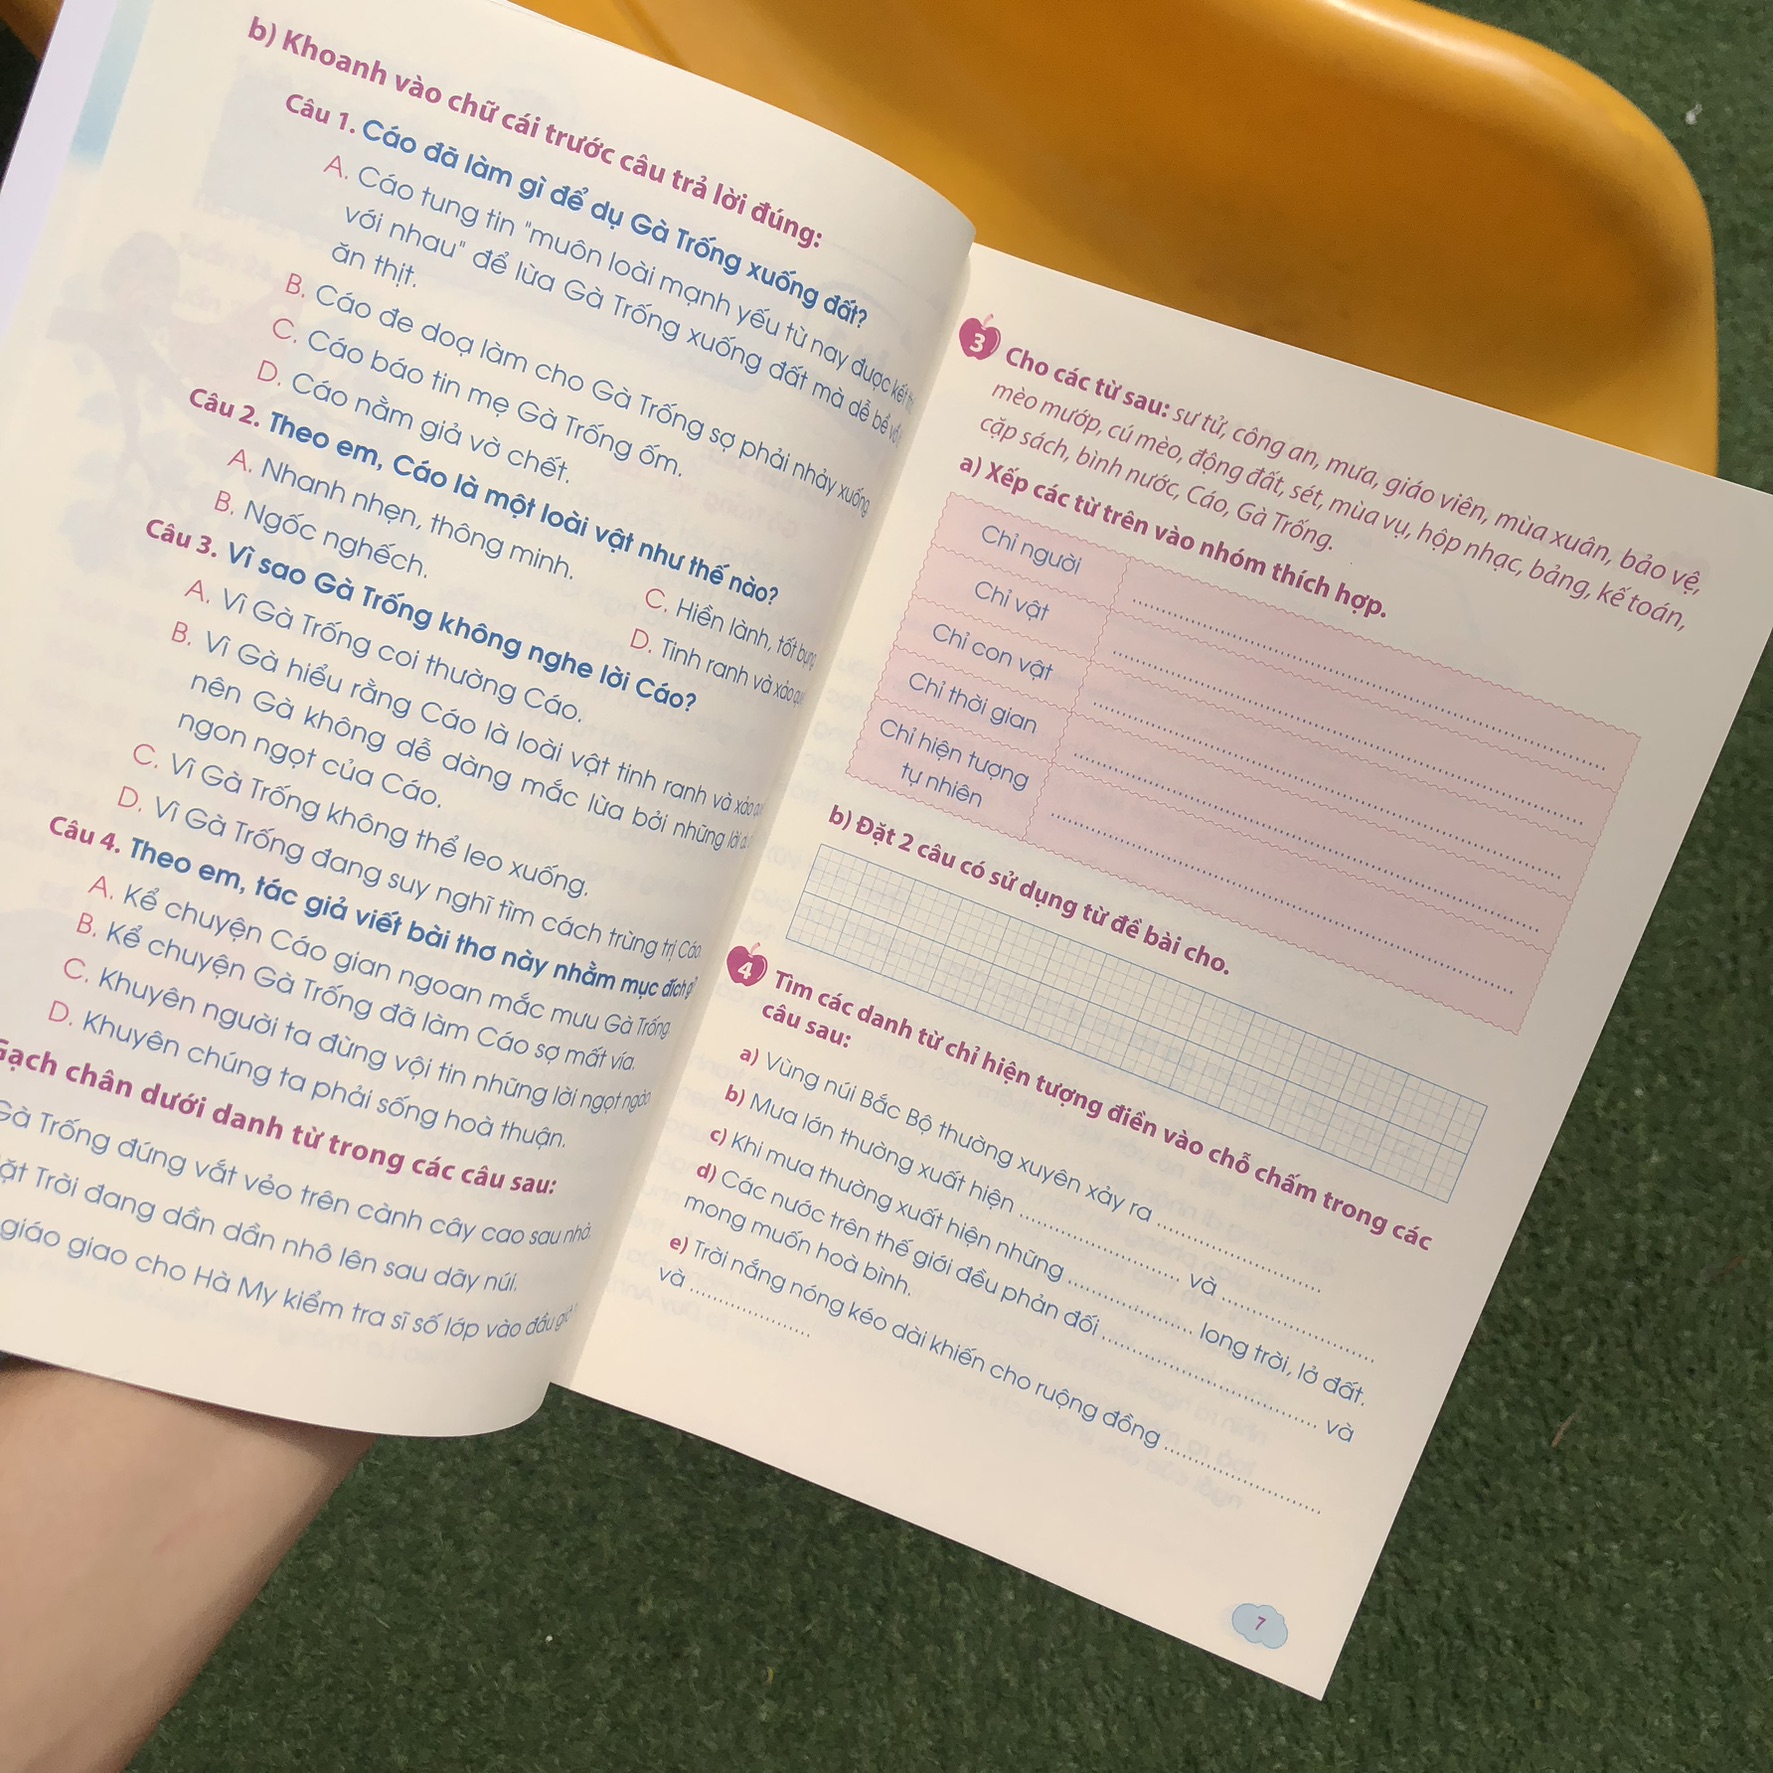 b) Khoanh vào chữ cái trước câu trả lời đúng:
Câu 1. Cáo đã làm gì để dụ Gà Trống xuống đất?
A. Cáo tung tin "muôn loài mạnh yếu từ nay được kết
với nhau" để lừa Gà Trống xuống đất mà dễ bề
ăn thịt.
B. Cáo đe doạ làm cho Gà Trống sợ phải nhảy xuống
C. Cáo báo tin mẹ Gà Trống ốm.
D. Cáo nằm giả vờ chết.
Câu 2. Theo em, Cáo là một loài vật như thế nào?
A. Nhanh nhẹn, thông minh.
C. Hiền lành, tốt bụng
B. Ngốc nghếch.
D. Tinh ranh và xảo
Câu 3. Vì sao Gà Trống không nghe lời Cáo?
A. Vì Gà Trống coi thường Cáo.
B. Vì Gà hiểu rằng Cáo là loài vật tinh ranh và xảo
nên Gà không dễ dàng mắc lừa bởi những lời
ngon ngọt của Cáo.
C. Vì Gà Trống không thể leo xuống.
D. Vì Gà Trống đang suy nghĩ tìm cách trừng trị Cáo.
Câu 4. Theo em, tác giả viết bài thơ này nhằm mục đích
A. Kể chuyện Cáo gian ngoan mắc mưu Gà Trống.
B. Kể chuyện Gà Trống đã làm Cáo sợ mất vía.
C. Khuyên người ta đừng vội tin những lời ngọt ngào
D. Khuyên chúng ta phải sống hoà thuận.
Gạch chân dưới danh từ trong các câu sau:
Gà Trống đứng vắt vẻo trên cành cây cao sau nhà.
Trời đang dần dần nhô lên sau dãy núi.
giáo giao cho Hà My kiểm tra sĩ số lớp vào đầu
3 Cho các từ sau: sư tử, công an, mưa, giáo viên, mùa xuân, bảo vệ,
mèo mướp, cú mèo, động đất, sét, mùa vụ, hộp nhạc, bảng, kế toán,
cặp sách, bình nước, Cáo, Gà Trống.
a) Xếp các từ trên vào nhóm thích hợp.
Chỉ người ....................
Chỉ vật ....................
Chỉ con vật ....................
Chỉ thời gian ....................
Chỉ hiện tượng
tự nhiên ....................
b) Đặt 2 câu có sử dụng từ đề bài cho.
4 Tìm các danh từ chỉ hiện tượng điền vào chỗ chấm trong các
câu sau:
a) Vùng núi Bắc Bộ thường xuyên xảy ra ....................
b) Mưa lớn thường xuất hiện .................... và ....................
c) Khi mưa thường xuất hiện những .................... long trời, lở đất.
d) Các nước trên thế giới đều phản đối .................... và
mong muốn hoà bình.
e) Trời nắng nóng kéo dài khiến cho ruộng đồng ....................
và ....................
7